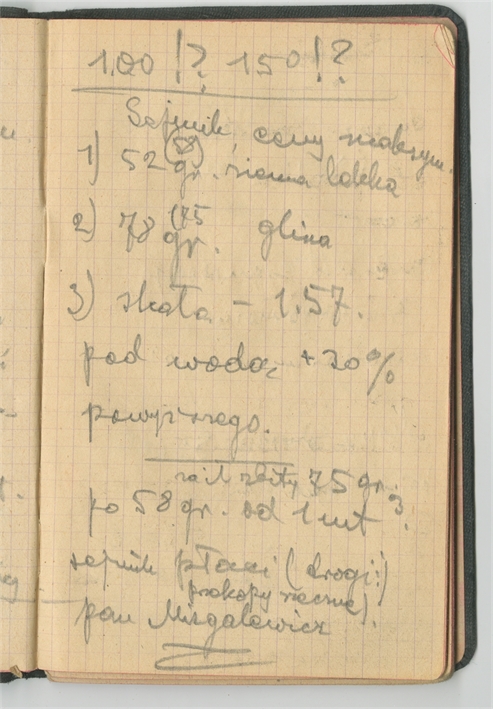 1.00 !? 150 !?
Sejmik, ceny maksym.
1) 52 (58) gr. ziemia lekka
2) 78 (75 gr. glina
3) skała – 1.57.
pod wodą + 20%
powyższego.
zbity 75 gr.
po 58 gr. od 1 mt 3.
sejmik płaci (drogi:)
przekopy rzeczne).
pan Misgalewicz